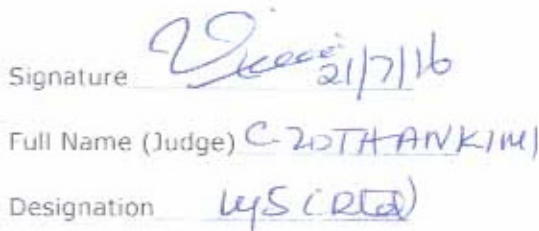 Signature 21/7/16
Full Name (Judge) C. ZOTHANKIMI
Designation (Rtd)